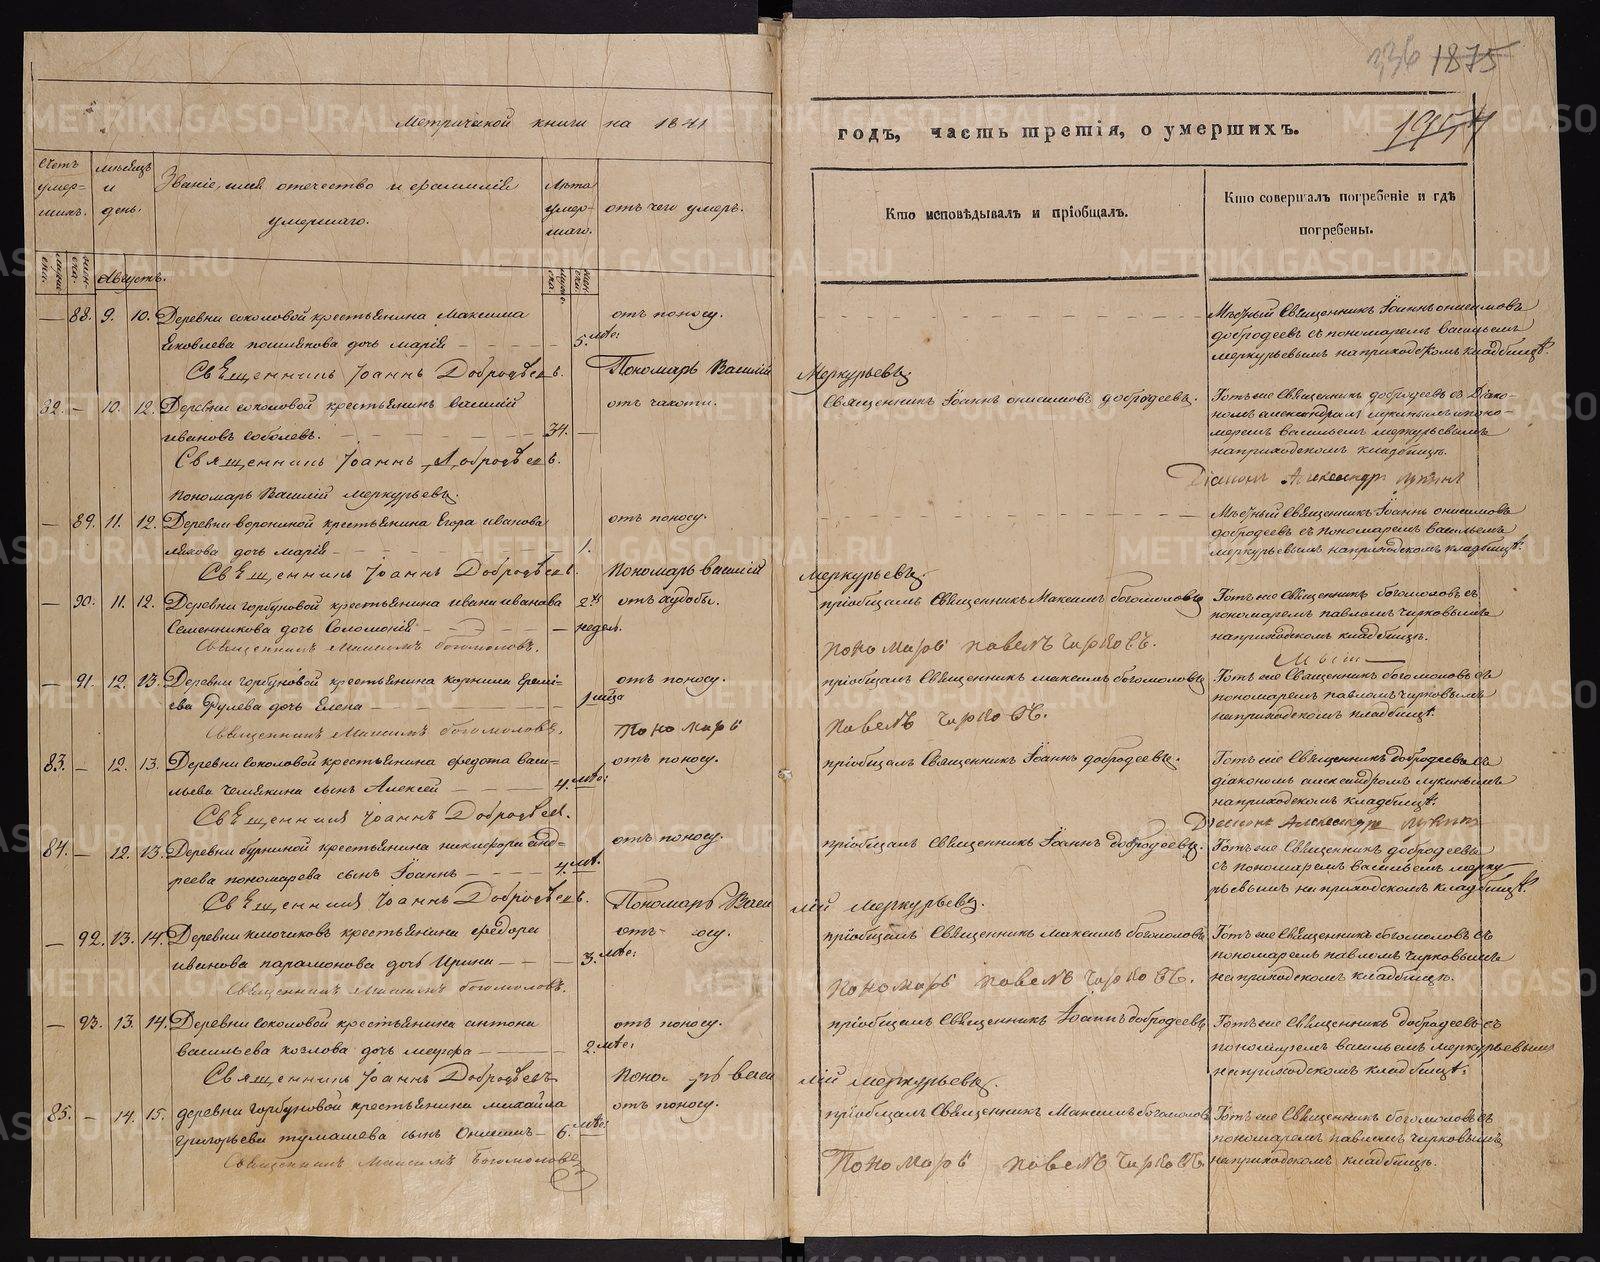 Метрической книги на 1841
счетъ умер-шихъ.
мѣсяцъ и день.
Званіе, имя отечество и фамилія умершаго.
Лѣта умер-шаго.
отъ чего умеръ.
Августъ.
88. 9. 10. Деревни соколовой крестьянина Максима
отъ поносу.
Яковлева дочь марія
5. мѣс:
Священникъ Іоаннъ Добродѣевъ.
Пономарь Василій
32. 10. 12. Деревни соколовой крестьянинъ василій
отъ чахоти.
ивановъ соболевъ.
34.
Священникъ Іоаннъ Добродѣевъ.
пономарь Василій меркурьевъ.
89. 11. 12. Деревни ворониной крестьянина Егора иванова
отъ поносу.
дочь марія
1.
Священникъ Іоаннъ Добродѣевъ.
пономарь василій
90. 11. 12. Деревни горбуновой крестьянина ивана иванова
2хъ
отъ худобы.
Семенникова дочь Соломонія
недел.
Священникъ Максимъ богомоловъ.
91. 12. 13. Деревни горбуновой крестьянина корнила еремѣ-
отъ поносу.
ева дочь Елена
1 мѣца
Священникъ Максимъ богомоловъ.
Пономарь
83. 12. 13. Деревни соколовой крестьянина федота васи-
отъ поносу.
льева чемякина сынъ Алексей
4. мѣс:
Священникъ Іоаннъ Добродѣевъ.
84. 12. 13. Деревни крестьянина никифора анд-
отъ поносу.
реева пономарева сынъ Іоаннъ
4. мѣ.
Священникъ Іоаннъ Добродѣевъ.
Пономарь Васи
92. 13. 14. Деревни ключиковъ крестьянина федора
отъ осу.
иванова парамонова дочь Ирина
3. мѣс:
Священникъ Максимъ богомоловъ.
93. 13. 14. Деревни соколовой крестьянина антона
отъ поносу.
васильева козлова дочь марфа
2. мѣс:
Священникъ Іоаннъ Добродѣевъ
Поно рь васи
85. 14. 15. деревни горбуновой крестьянина михайла
отъ поносу.
григорьева тумашева сынъ
6. мѣс:
Священникъ Максимъ Богомоловъ
336 1875
годъ, часть третія, о умершихъ.
Кто исповѣдывалъ и пріобщалъ.
Кто совершалъ погребеніе и гдѣ погребены.
Мѣстный Священникъ Іоаннъ онисимовъ
добродеевъ съ пономаремъ васильемъ
меркурьевымъ на приходскомъ кладбищѣ.
Меркурьевъ.
Священникъ Іоаннъ онисимовъ добродеевъ.
Тотъ же Священникъ добродеевъ съ Діако-
номъ александромъ лукинымъ и поно-
маремъ васильемъ меркурьевымъ
на приходскомъ кладбищѣ.
Діаконъ Александръ лукинъ
Мѣстный Священникъ Іоаннъ онисимовъ
добродеевъ съ пономаремъ васильемъ
меркурьевымъ на приходскомъ кладбищѣ.
меркурьевъ.
пріобщалъ Священникъ Максимъ богомоловъ
Тотъ же Священникъ богомоловъ съ
пономаремъ павломъ чирковымъ
на приходскомъ кладбищѣ.
пономарь павелъ чирковъ.
пріобщалъ Священникъ максимъ богомоловъ
Тотъ же Священникъ богомоловъ съ
пономаремъ павломъ чирковымъ
на приходскомъ кладбищѣ.
павелъ чирковъ.
пріобщалъ Священникъ Іоаннъ добродеевъ.
Тотъ же Священникъ добродеевъ съ
діакономъ александромъ лукинымъ
на приходскомъ кладбищѣ.
Діаконъ Александръ лукинъ
пріобщалъ Священникъ Іоаннъ добродеевъ.
Тотъ же Священникъ добродеевъ
съ пономаремъ васильемъ мерку-
рьевымъ на приходскомъ кладбищѣ.
лій меркурьевъ.
пріобщалъ Священникъ Максимъ богомоловъ
Тотъ же Священникъ богомоловъ съ
пономаремъ павломъ чирковымъ
на приходскомъ кладбищѣ.
пономарь павелъ чирковъ.
пріобщалъ Священникъ Іоаннъ добродеевъ
Тотъ же Священникъ добродеевъ съ
пономаремъ васильемъ меркурьевымъ
на приходскомъ кладбищѣ.
лій меркурьевъ.
пріобщалъ Священникъ Максимъ богомоловъ
Тотъ же Священникъ богомоловъ съ
пономаремъ павломъ чирковымъ
на приходскомъ кладбищѣ.
Пономарь павелъ чирковъ
METRIKI.GASO-URAL.RU